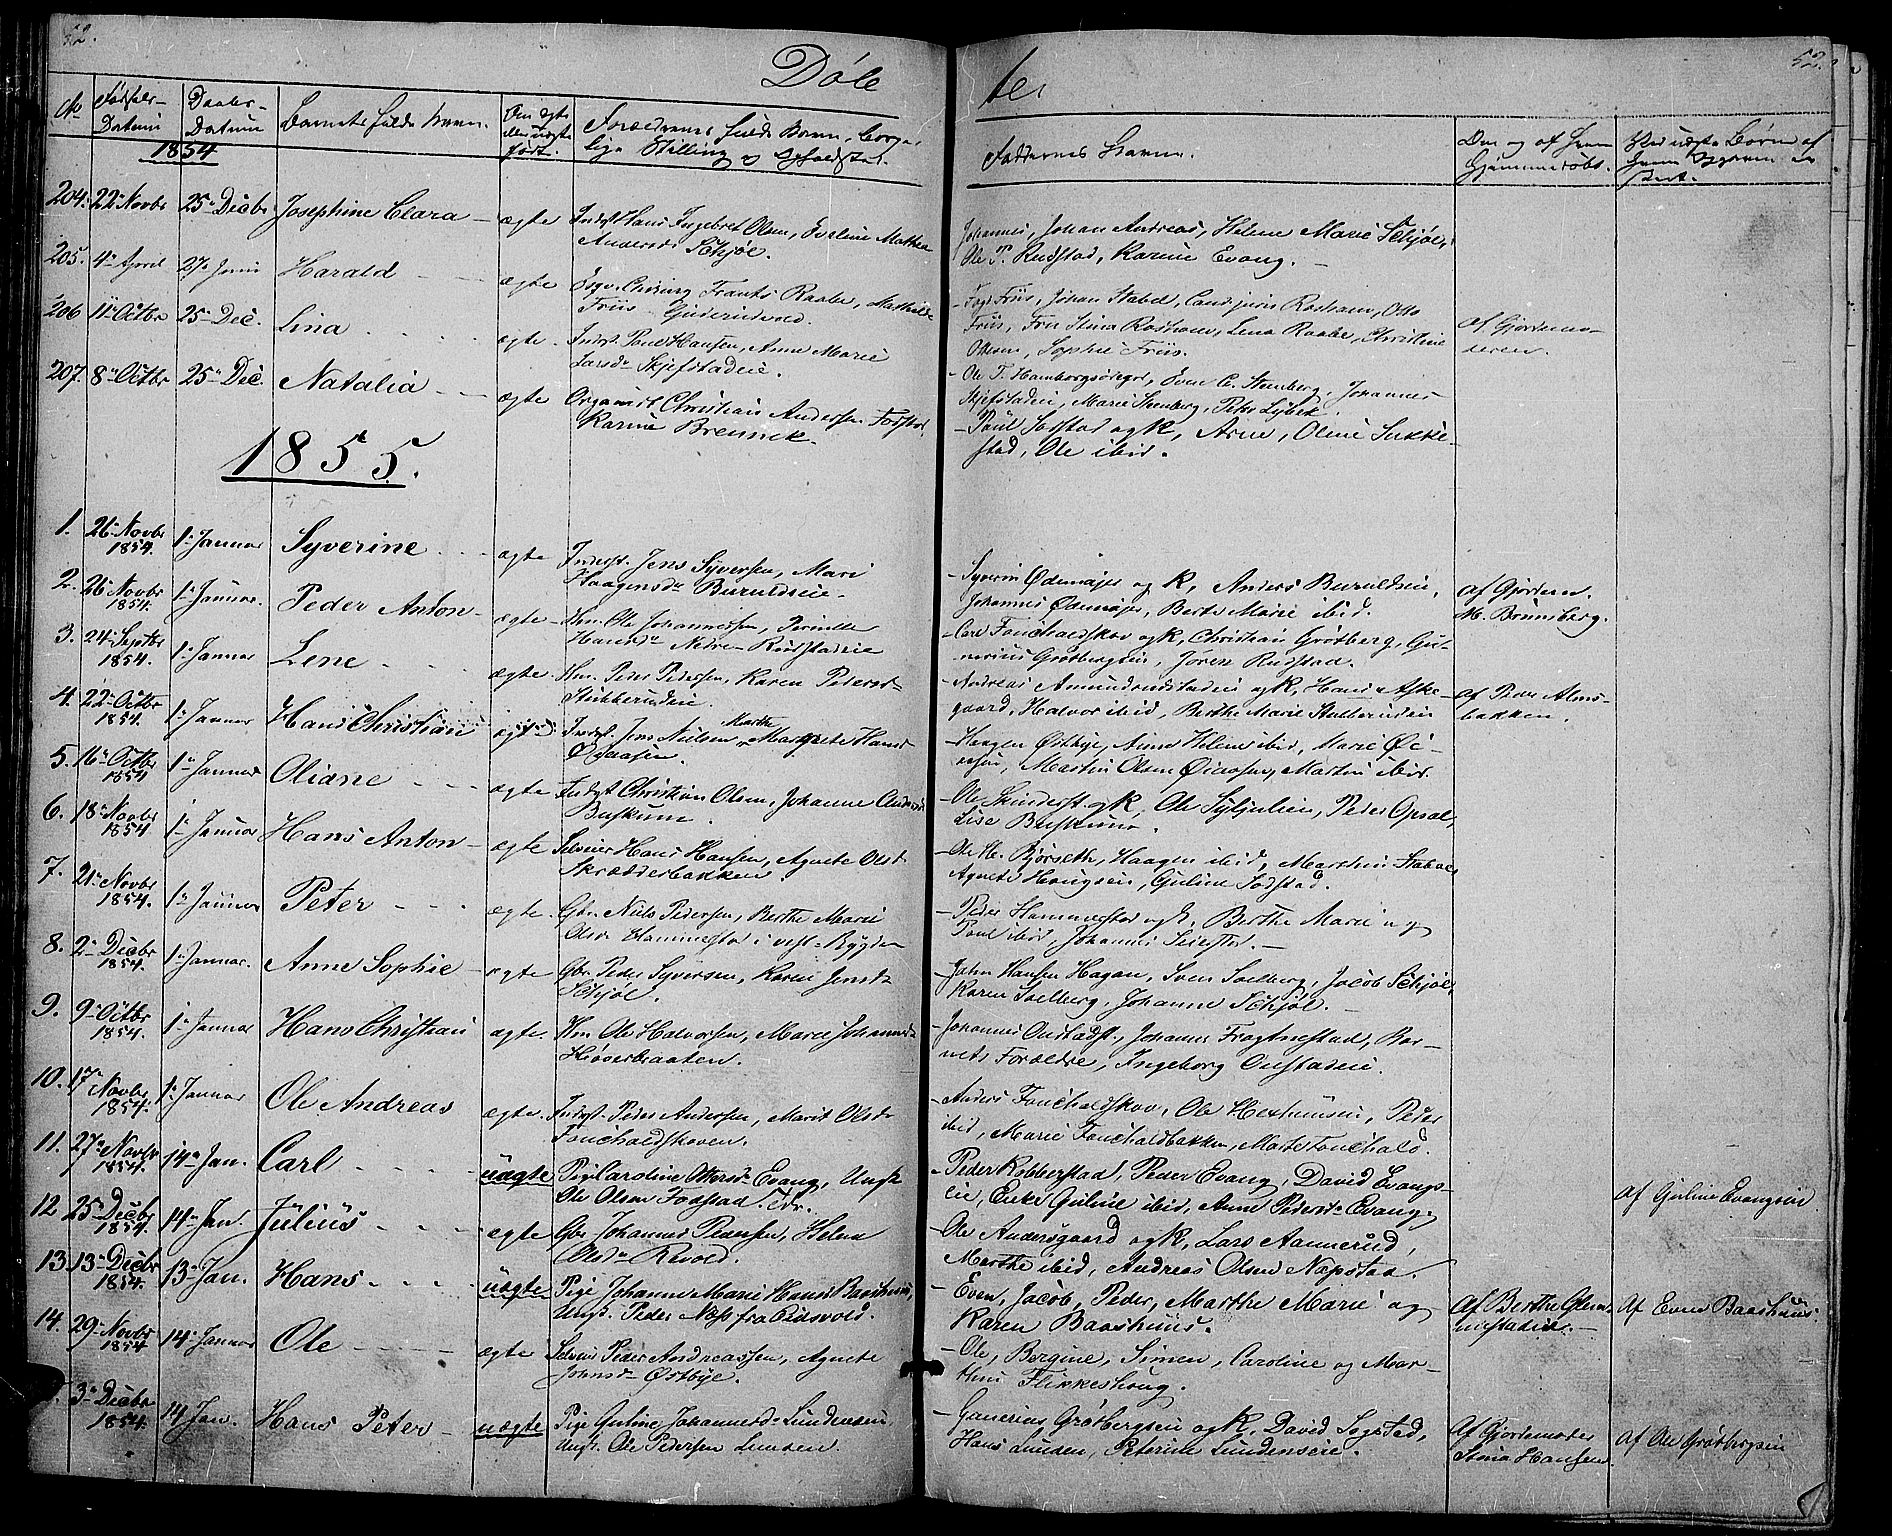 52.
52.
Døbte
No
Fødsels-
Datum
Daabs-
Datum
Barnets fulde Navn.
Om ægte
eller uægte
født.
Forældrenes fulde Navn, borger-
lige Stilling og Opholdsted.
Faddernes Navne.
Om og af hvem
hjemmedøbt.
Ved uægte Børn af
1854
204. 22 Novbr 25 Decbr Josephine Clara ægte Indst Hans Ingebret Olsen, Eveline Mathea
Andersd Schjøl.
Johannes, Johan Andreas, Helene Marie Schjøl,
Ole T. Rudstad, Karine Evang.
205. 4 April 27 Juni Harald ægte Chirurg Frants Raabe, Mathilde
Friis
Fogt Friis, Johan Stabel, Cand juris Rosham, Otto
Friis, Fru Stina Rosham, Lena Raabe, Christine
Ottesen, Sophie Friis.
af Gjordemo-
deren.
206 11 Octbr 25 Dec. Lina ægte Indst Poul Hansen, Anne Marie
Larsd Skjefstadeie.
Ole T. Hamborgsdreget, Even C. Steenberg, Johannes
Skjefstadeie, Marie Steenberg, Petr Lybek.
207. 8 Octbr 25 Dec. Natalia ægte Organist Christian Andersen Fodstad,
Karine Brennek.
Paul Sodstad og K, Arne, Oline Sukke-
stad, Ole ibid.
1855.
1. 26 Novbr 1854. 1 Januar Syverine ægte Inderst. Jens Syversen, Mari
Haagensd Buruldseie.
Syverin Ødemajer og K, Anders Buruldseie,
Johannes Ødemajer, Berte Marie ibid.
af Gjordem.
M. Brunsberg.
2. 26 Novbr 1854. 1 Januar. Peder Anton ægte Hm. Ole Johannessen, Pernille
Hansd Nedre-Rudstadeie
Carl Fouchaldskov og K, Christian Grøtberg, Gu-
nerius Grøtbergseie, Jøren Rudstad.
3. 24 Septbr 1854. 1 Januar Lene ægte Hm. Peder Pedersen, Karen Pedersd
Stubberudeie.
Andreas Amundrudstadeie og K, Hans Aske-
gaard, Halvor ibid, Berthe Marie Stubberudeie
af Peder Alms-
bakken.
4. 22 Octbr 1854. 1 Januar Hans Christian ægte Indst. Jens Nielsen, Marthe Margrete Hansd
Øiaasen.
Haagen Østbye, Anne Helene ibid, Marie Øi-
aasen, Martin Olsen Øiaasen, Martin ibid.
5. 16 Octbr 1854 1 Januar Oliane ægte Indst Christian Olsen, Johanne Andersd
Buskerud.
Ole Skinderst og K, Ole Syljulien, Peder Opsal,
Lise Buskerud.
6. 18 Novbr 1854 1 Januar Hans Anton ægte Selveier Hans Hansen, Agnete Olsd
Skrædderbakken.
Ole M. Bjørseth, Haagen ibid, Marthin Stabæk,
Agnete Haugseie, Guline Sodstad.
7. 21 Novbr 1854. 1 Januar Peter ægte. Gbr. Niels Pedersen, Berthe Marie
Olsd Hammerstad i vest-Bygden
Peder Hammerstad og K. Berthe Marie og
Paul ibid, Johannes Seierstd.
8. 2 Decbr 1854. 1 Januar. Anne Sophie ægte Gbr. Peder Syversen, Karen Jensd
Schjøl.
John Hansen Hagan, Sven Soelberg, Jacob Schjøl,
Karen Soelberg, Johanne Schjøl.
9. 9 Octbr 1854. 1 Januar Hans Christian ægte Hm. Ole Halvorsen, Marie Johannesd
Høverbraaten.
Johannes Onstadst, Johannes Frogtnestad, Bar-
nets Forældre, Ingeborg Onstadeie.
10. 17 Novbr 1854. 1 Januar Ole Andreas ægte. Indst. Peder Andersen, Marit Olsd
Fouchaldskoven.
Anders Fouchaldskov, Ole Hexhuuseie, Peder
ibid, Marie Fouchaldbakken, Marte Fouchald.
11. 27 Novbr 1854. 14 Jan. Carl uægte Pige Caroline Ottersd Evang, Ungk
Ole Olsen Fodstad Edr.
Peder Kobberstad, Peder Evang, David Evangs-
eie, Enke Guline ibid, Anne Pedersd Evang.
Af Guline Evangseie
12 25 Decbr 1854. 14 Jan. Julius ægte Gbr Johannes Pedersen, Helene
Olsd Risvold.
Ole Andersgaard og K, Lars Aannerud,
Marthe ibid, Andreas Olsen Napstad.
13. 13 Decbr 1854. 13 Jan. Hans uægte Pige Johanne Marie Hansd Baashuus,
Ungk. Peder Næss fra Eidsvold.
Even, Jacob, Peder, Marthe Marie og
Karen Baashuus.
Af Berthe Glem-
mestadeie.
Af Even Baashuus.
14. 29 Novbr 1854 14 Januar Ole ægte Selveier Peder Andreassen, Agnete
Johnsd Østbye.
Ole, Bergine, Simen, Caroline og Mar-
thin Flikkeshoug.
3 Decbr 1854. 14 Jan. Hans Peter uægte Pige Guline Johannesd Lundenseie
Ungk. Ole Pedersen Lunden
Gunerius Grøtbergseie og K, David Sogstad,
Hans Lunden, Peterine Lundenseie.
Af Gjordemoder
Stina Hansen
Af Ole Grøtbergseie